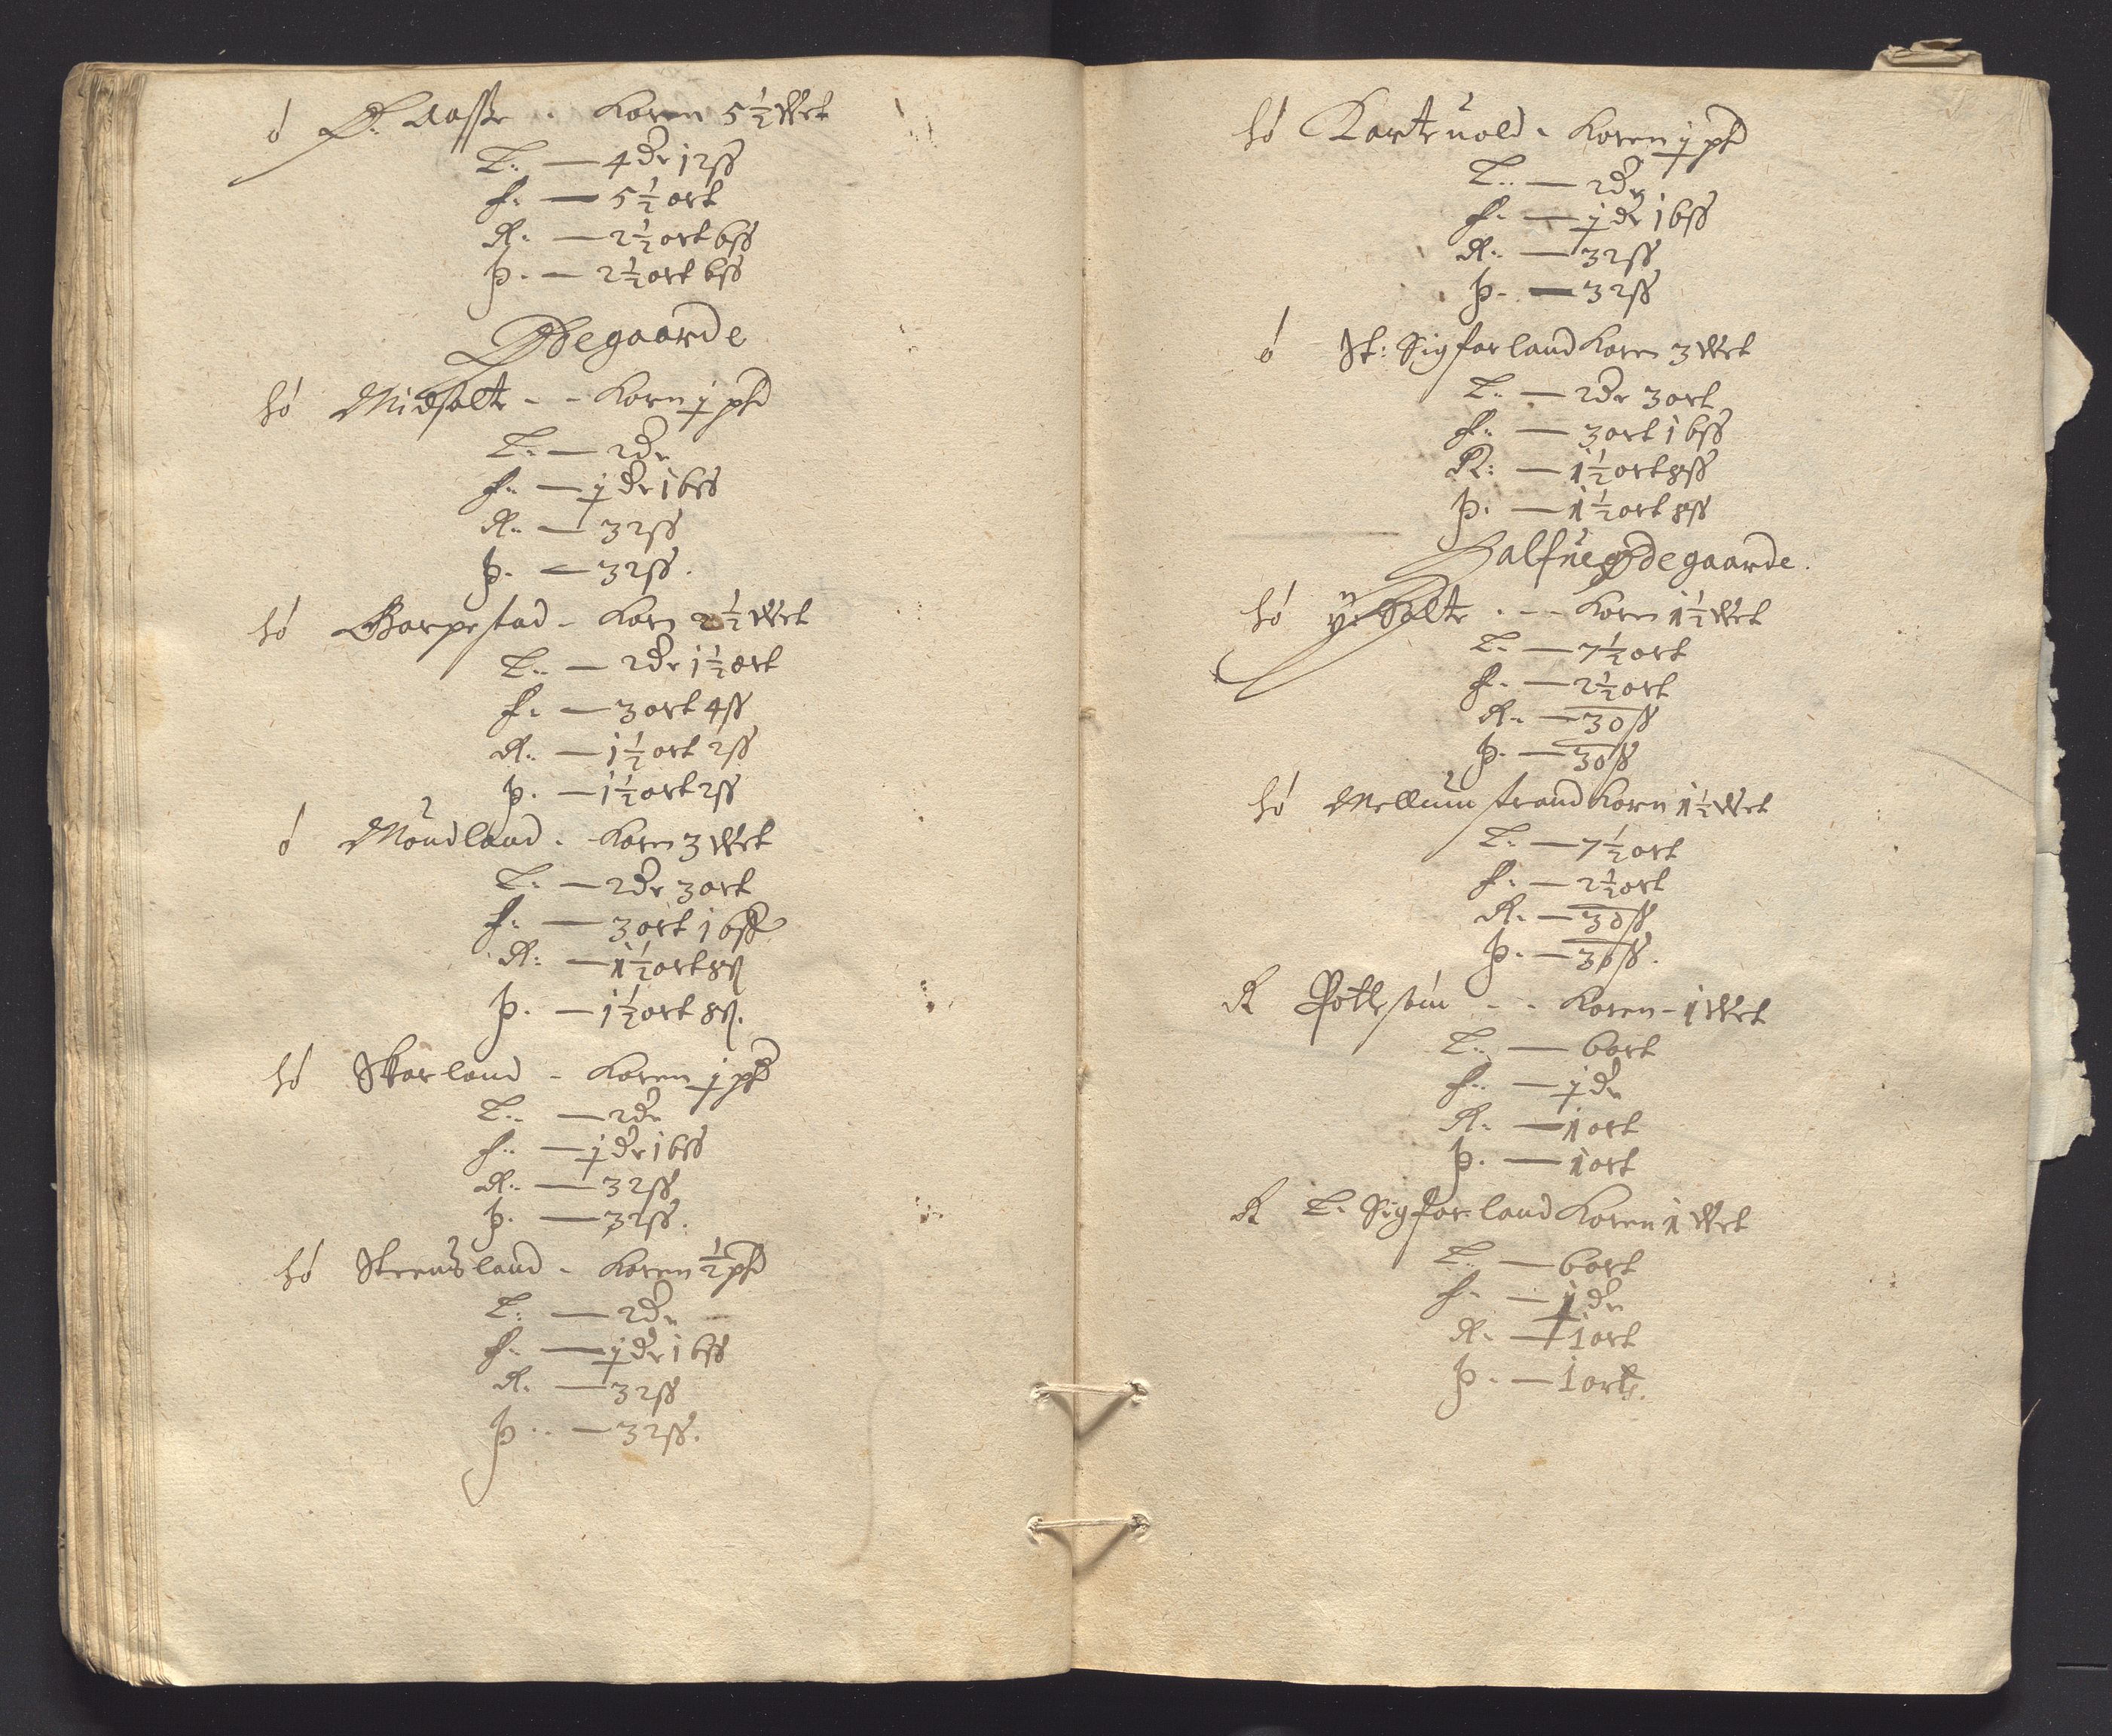 ó Ø. Aasße . Koren 5½ Wet
L.. — 4 dr 12 ß
f. — 5½ ort
R. — 2½ ort 6 ß
Þ. — 2½ ort 6 ß
Ødegaarde
hó Midsolte - - Korn j pd
L.. — 2 dr
f.. — j dr 16 ß
R.. — 32 ß
Þ. — 32 ß.
hó Garpestad - Korn 2½ Wet
L.. — 2 dr 1½ ort
f. — 3 ort 4 ß
R.. — 1½ ort 2 ß
Þ. — 1½ ort 2 ß
ó Moudland . Koren 3 Wet
L. — 2 dr 3 ort
f. — 3 ort 16 ß
R. — 1½ ort 8 ß
Þ. — 1½ ort 8 ß.
hó Skorland - Koren j pd
L.. — 2 dr
f.. — j dr 16 ß
R.. — 32 ß
Þ. — 32 ß.
hó Steensland - Koren ½ pd
L: — 2 dr
f. — j dr 16 ß
R. — 32 ß
Þ.. — 32 ß.
hó Kartevold - Koren j pd
L.. — 2 dr
f. — j dr 16 ß
R.. — 32 ß
Þ. — 32 ß
ó St: Sigforland Koren 3 Wet
L.. — 2 dr 3 ort
f.. — 3 ort 16 ß
R: — 1½ ort 8 ß
Þ. — 1½ ort 8 ß
Halfue Ødegaarde.
hó ÿ. Solte . - - Koren 1½ Wet
L.. — 7½ ort
f. — 2½ ort
R.. — 30 ß
Þ. — 30 ß
hó Mellumstrand Korn 1½ Wet
L. — 7½ ort
f. — 2½ ort
R. — 30 ß
Þ. — 30 ß.
R - - Koren - 1 Wet
L.. — 6 ort
f.. — j dr
R. — 1 ort
Þ. — 1 ort
R L. Sigforland Koren 1 Wet
L.. — 6 ort
f. — j dr
R. — 1 ort
Þ. — 1 ort.